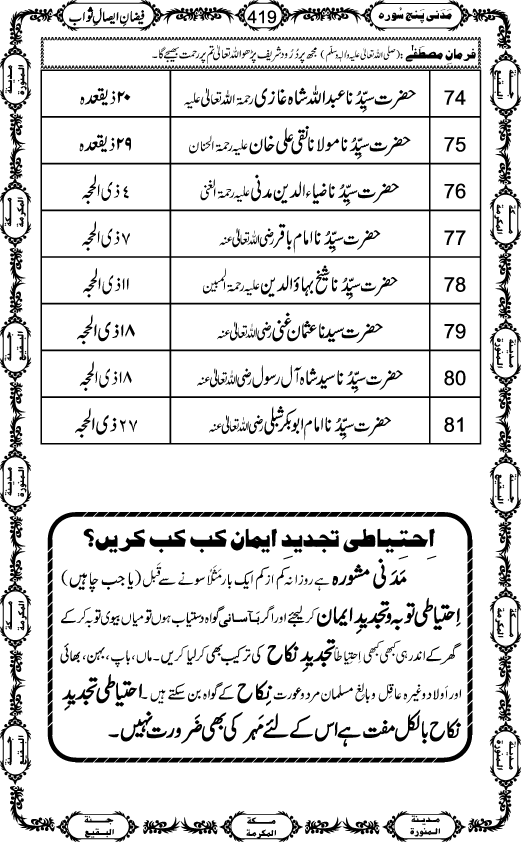 مَدَنی پَنج سُورہ 419 فیضانِ ایصالِ ثواب
فرمانِ مصطفٰے (صلی اللہ تعالیٰ علیہ والہٖ وسلّم): مجھ پر دُرُود شریف پڑھو اللہ تعالیٰ تم پر رحمت بھیجے گا۔
74 حضرت سیِّدُنا عبداللہ شاہ غازی رحمۃ اللہ تعالیٰ علیہ ۲۰ ذیقعدہ
75 حضرت سیِّدُنا مولانا نقی علی خان علیہ رحمۃ الحنان ۲۹ ذیقعدہ
76 حضرت سیِّدُنا ضیاء الدین مدنی علیہ رحمۃ الغنی ٤ ذی الحجہ
77 حضرت سیِّدُنا امام باقر رضی اللہ تعالیٰ عنہ ۷ ذی الحجہ
78 حضرت سیِّدُنا شیخ بہاؤالدین علیہ رحمۃ المبین ۱۱ ذی الحجہ
79 حضرت سیدنا عثمان غنی رضی اللہ تعالیٰ عنہ ۱۸ ذی الحجہ
80 حضرت سیِّدُنا سید شاہ آل رسول رضی اللہ تعالیٰ عنہ ۱۸ ذی الحجہ
81 حضرت سیِّدُنا امام ابوبکر شبلی رضی اللہ تعالیٰ عنہ ۲۷ ذی الحجہ
اِحتِیاطی تجدیدِ ایمان کب کب کریں؟
مَدَنی مشورہ ہے روزانہ کم از کم ایک بار مَثَلًا سونے سے قَبل (یا جب چاہیں)
اِحتِیاطی توبہ و تجدیدِ ایمان کر لیجئے اور اگر بَآسانی گواہ دستیاب ہوں تو میاں بیوی توبہ کر کے
گھر کے اندر ہی کبھی کبھی احتیاطاً تجدیدِ نکاح کی ترکیب بھی کر لیا کریں۔ ماں، باپ، بہن، بھائی
اور اَولاد وغیرہ عاقِل و بالغ مسلمان مرد و عورت نِکاح کے گواہ بن سکتے ہیں۔ احتیاطی تجدیدِ
نکاح بالکل مفت ہے اس کے لئے مَہر کی بھی ضَرورت نہیں۔
مدینۃ المنورۃ
مکۃ المکرمۃ
جنۃ البقیع
مدینۃ المنورۃ
مکۃ المکرمۃ
جنۃ البقیع
جنۃ البقیع
مکۃ المکرمۃ
مدینۃ المنورۃ
جنۃ البقیع
مکۃ المکرمۃ
مدینۃ المنورۃ
مدینۃ المنورۃ مکۃ المکرمۃ جنۃ البقیع